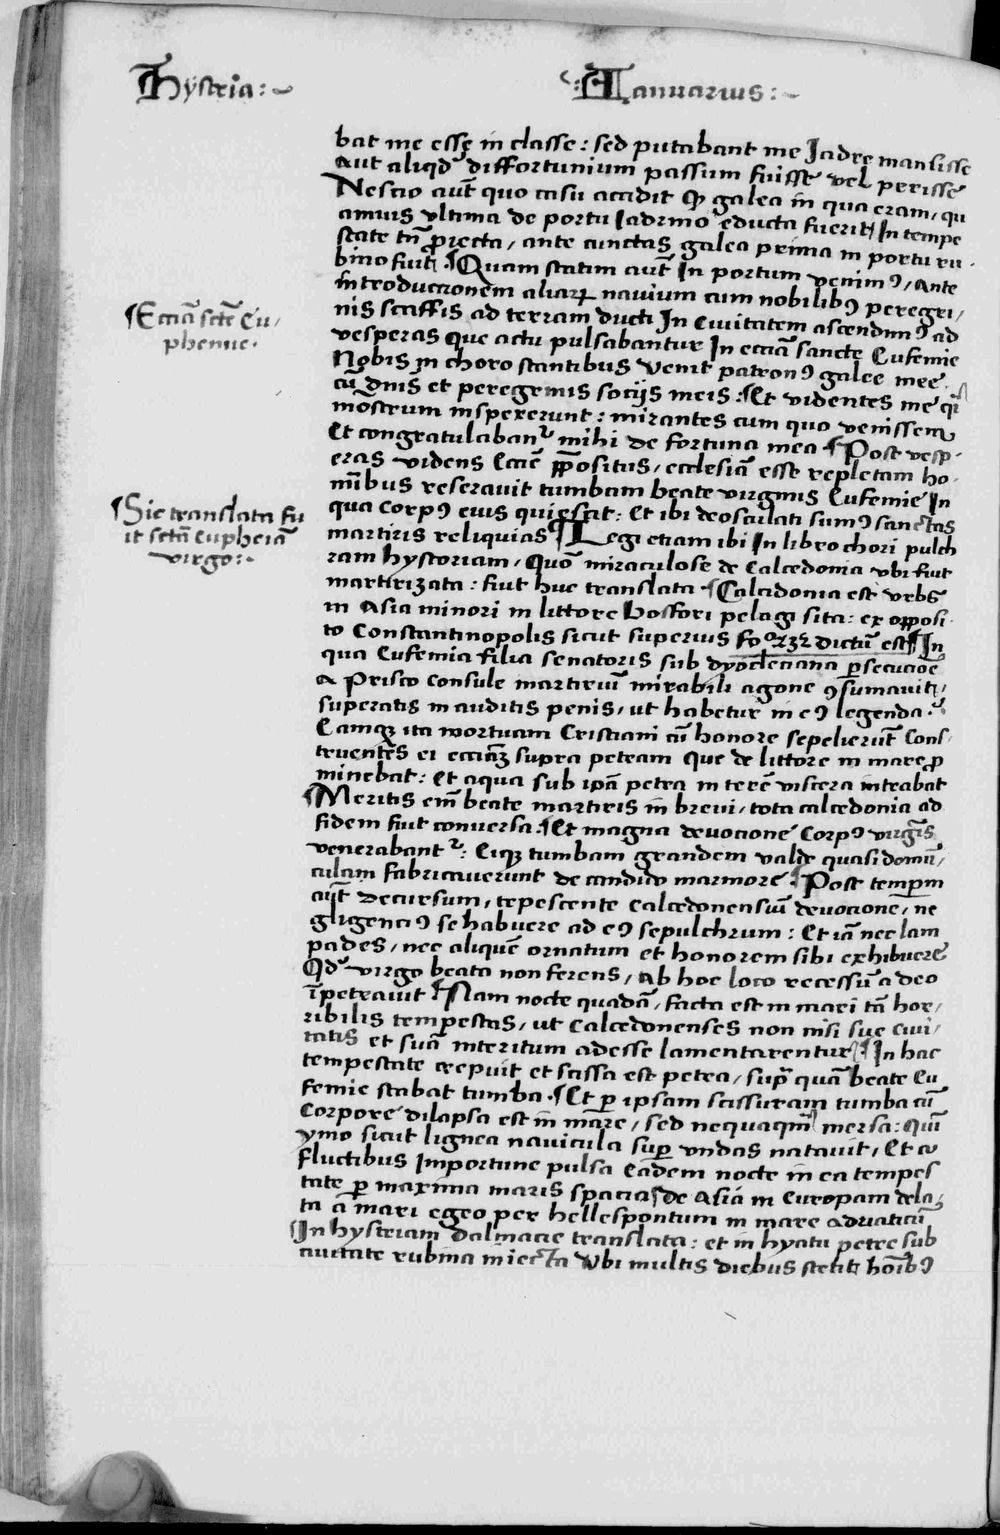 Hÿstria:~
Ianuarius:~
bat me esse in classe: sed putabant me Jadre mansisse
Aut aliqd̛ diffortunium passum fuisse vel perisse
Nescio aut̃ quo casu accidit ꝙ galea in qua eram, qu
amuis vltima de portu Iadrino educta fuerit, In tempe
state tn̄ ꝓiecta, ante cunctas galea prima in portu ru
bino fuit ¶Quam statim aut̃ In portum venimꝰ, Ante
introductionem aliaꝝ nauium cum nobilibꝰ peregri,
nis scaffis ad terram ducti In Ciuitatem ascendimꝰ ad
vesperas que actu pulsabantur In eccīa sancte Eufemie
Nobis in choro stantibus venit patronꝰ galee mee
cū dnīs et peregrinis socijs meis: ¶Et videntes me q̄i
monstrum inspexerunt: mirantes cum quo venissem
Et congratulabant᷑ mihi de fortuna mea ¶Post vesp-
eras videns Eccīe p̄positus, ecclesiā esse repletam ho-
mībus reserauit tumbam beate virginis Eufemie In
qua Corpꝰ eius quiescit: Et ibi deosculati sumꝰ sanctas
martiris reliquias ¶Legi etiam ibi In libro chori pulch
ram hystoriam, Quō miraculose de Calcedonia vbi fuit
martirizata: fuit huc translata ¶Calcidonia est vrbs
in Asia minori in littore bosfori pelagi sita: ex opposi-
to Constantinopolis sicut superius fo dictū est ¶In
qua Eufemia filia senatoris sub dyocleciana ꝑsecucioē
A Prisco Consule martiriū mirabili agone ꝯsumauit,
superatis inauditis penis, ut habetur in eꝰ legenda.
Eamqꝫ ita mortuam Cristiani cū honore sepelierūt Cons,
truentes ei eccīaꝫ supra petram que de littore in mare ꝓ
minebat: et aqua sub ip̄a petra in terē viscera intrabat
¶Meritis em̄ beate martiris in breui, tota calcedonia ad
fidem fuit conuersa. ¶Et magna deuocione Corpꝰ virgīs
venerabant᷑: Eiqꝫ tumbam grandem valde quasi domū,
culam fabricauerunt de candido marmore ¶Post temp̄m
aūt decursum, tepescente Calcedonensiū deuocione, ne
gligenciꝰ se habuere ad eꝰ sepulchrum: Et iā nec lam
pades, nec aliquē ornatum et honorem sibi exhibuere
Qd̛ virgo beata non ferens, Ab hoc loco recessū a deo
īpetrauit ¶Nam nocte quadā, facta est in mari tā hor,
ribilis tempestas, ut Calcedonenses non nisi sue ciui,
tatis et suā interitum adesse lamentarentur ¶In hac
tempestate crepuit et scissa est petra, supra quā beate Eu
femie stabat tumba. ¶Et ꝑ ipsam scissuram tumba cū
Corpore dilapsa est in mare, sed nequaqm̄ mersa: Quī
ymo sicut lignea nauicula suꝑ vndas natauit, Et a
fluctibus Importune pulsa Eadem nocte in ea tempes
tate ꝑ maxima maris spacia de Asia in Europam dela,
ta a mari egeo per hellespontum in mare adriaticū
¶In hystriam dalmacie translata: et in hyatu petre sub
ciuitate rubina iniecta Vbi multis diebus stetit hoībꝰ
¶Eccīa scte Eu,
phemie.
¶Sic translata fu
it sctā Eupheiā
virgo:.